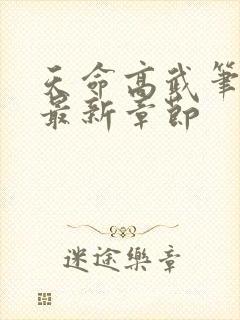 天命高武笔
最新章节
迷途樂章